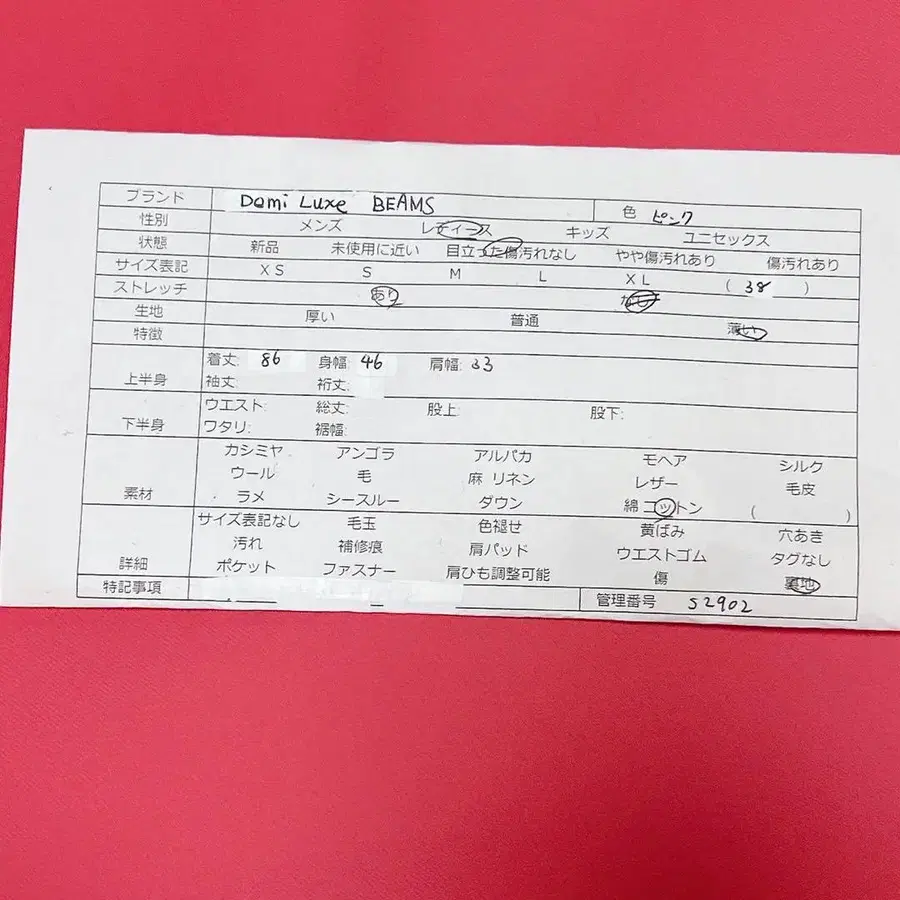 ブランド Demi Luxe BEAMS 色 ピンク
性別 メンズ レディース キッズ ユニセックス
状態 新品 未使用に近い 目立った傷汚れなし やや傷汚れあり 傷汚れあり
サイズ表記 XS S M L XL ( 38 )
ストレッチ あり なし
生地 厚い 普通 薄い
特徴
上半身 着丈: 86 身幅: 46 肩幅: 33
袖丈: 裄丈:
下半身 ウエスト: 総丈: 股上: 股下:
ワタリ: 裾幅:
素材 カシミヤ アンゴラ アルパカ モヘア シルク
ウール 毛 麻 リネン レザー 毛皮
ラメ シースルー ダウン 綿 コットン ( )
詳細 サイズ表記なし 毛玉 色褪せ 黄ばみ 穴あき
汚れ 補修痕 肩パッド ウエストゴム タグなし
ポケット ファスナー 肩ひも調整可能 傷 裏地
特記事項 管理番号 S2902